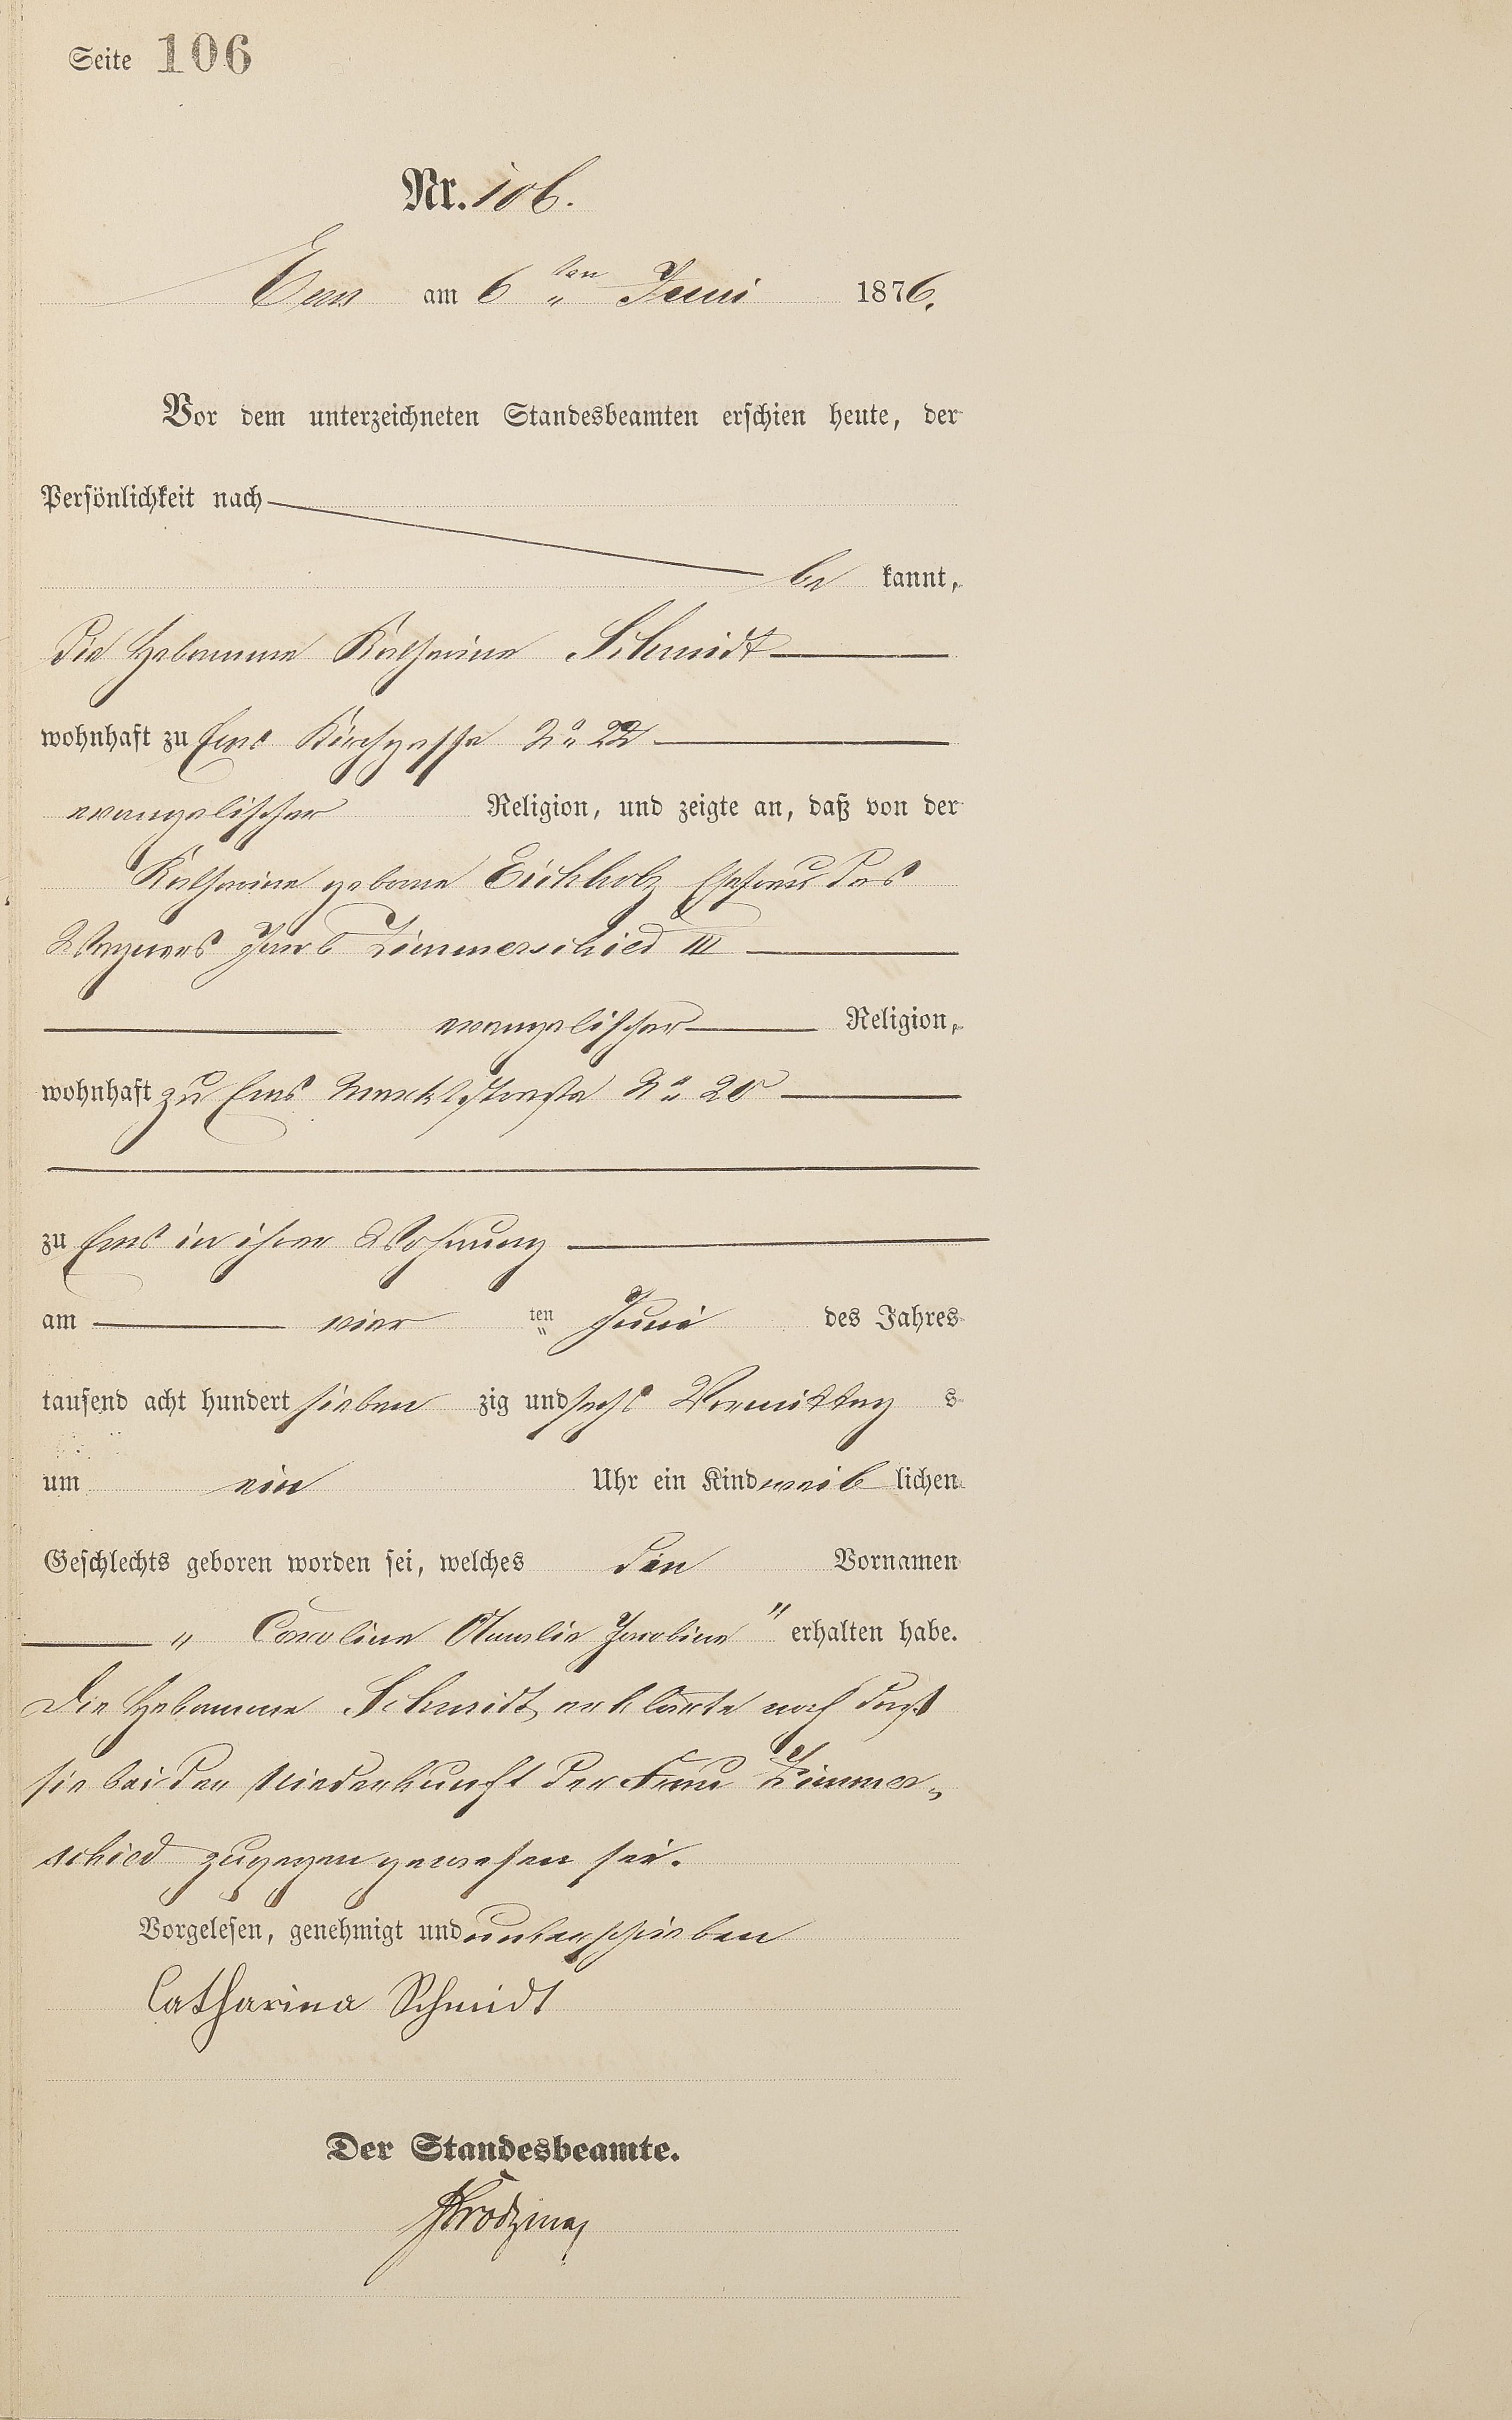 Seite 106
Nr. 106.
Ems am 6 ten Juni 1876.
Vor dem unterzeichneten Standesbeamten erschien heute, der
Persönlichkeit nach
be kannt,
die Hebamme Katharine Schmidt
wohnhaft zu Ems Kirchgasse No 22
evangelischer Religion, und zeigte an, daß von der
Katharine geborne Eichholz Ehefrau des
Wagners Jacob Zimmerschied III
evangelischer Religion,
wohnhaft zu Ems Marktstraße No 20
zu Ems in ihrer Wohnung
am vier ten Juni des Jahres
tausend acht hundert sieben zig und sechs Vormittag s
um ein Uhr ein Kind weib lichen
Geschlechts geboren worden sei, welches den Vornamen
" Caroline Amalie Jacobine " erhalten habe.
Die Hebamme Schmidt erklärte noch daß
sie bei der Niederkunft der Frau Zimmer-
schied zugegen gewesen sei.
Vorgelesen, genehmigt und unterschrieben
Catharina Schmidt
Der Standesbeamte.